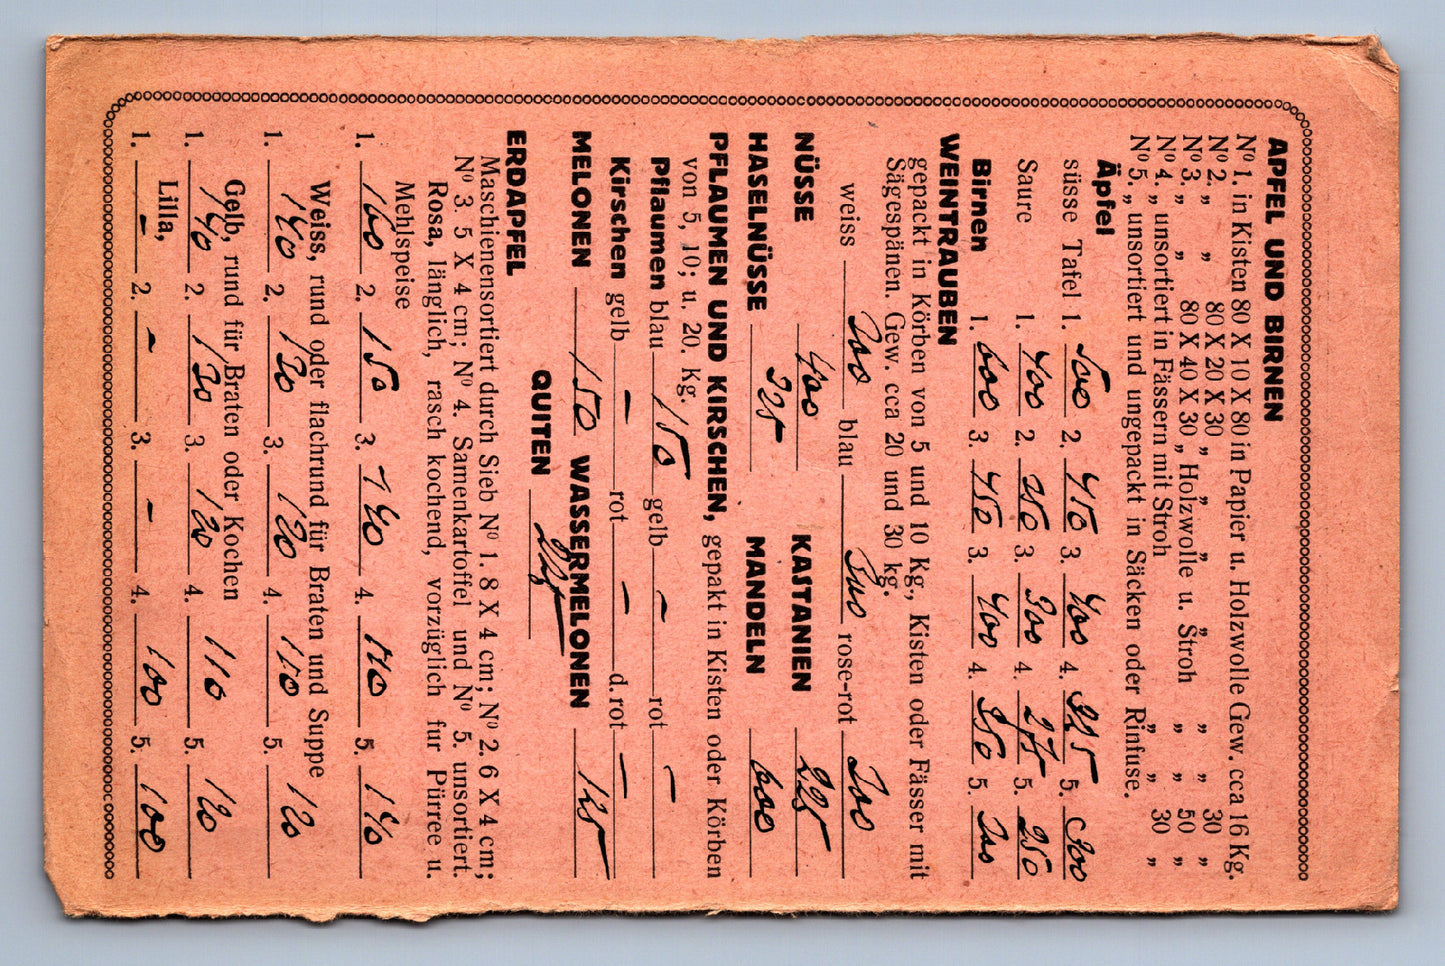 APFEL UND BIRNEN
Nº 1. in Kisten 80 X 10 X 80 in Papier u. Holzwolle Gew. cca 16 Kg.
Nº 2. „ „ 80 X 20 X 30 „ „ „ „ 30 „
Nº 3. „ „ 80 X 40 X 30 „ Holzwolle u. Stroh „ „ 50 „
Nº 4. „ unsortiert in Fässern mit Stroh „ „ 30 „
Nº 5. „ unsortiert und ungepackt in Säcken oder Rinfuse.
Äpfel
süsse Tafel 1. 500 2. 450 3. 400 4. 325 5. 300
Saure 1. 400 2. 350 3. 300 4. 275 5. 250
Birnen 1. 600 3. 450 3. 400 4. 350 5. 300
WEINTRAUBEN
gepackt in Körben von 5 und 10 Kg., Kisten oder Fässer mit
Sägespänen. Gew. cca 20 und 30 kg.
weiss 300 blau 300 rose-rot 300
NÜSSE 400 KASTANIEN 225
HASELNÜSSE 325 MANDELN 600
PFLAUMEN UND KIRSCHEN, gepakt in Kisten oder Körben
von 5, 10; u. 20. Kg.
Pflaumen blau 150 gelb – rot –
Kirschen gelb – rot – d. rot –
MELONEN 150 WASSERMELONEN 125
QUITEN
ERDAPFEL
Maschienensortiert durch Sieb Nº 1. 8 X 4 cm; Nº 2. 6 X 4 cm;
Nº 3. 5 X 4 cm; Nº 4. Samenkartoffel und Nº 5. unsortiert.
Rosa, länglich, rasch kochend, vorzüglich fur Pürree u.
Mehlspeise
1. 160 2. 150 3. 140 4. 110 5. 140
Weiss, rund oder flachrund für Braten und Suppe
1. 140 2. 130 3. 120 4. 110 5. 120
Gelb, rund für Braten oder Kochen
1. 140 2. 130 3. 120 4. 110 5. 120
Lilla,
1. – 2. – 3. – 4. 100 5. 100